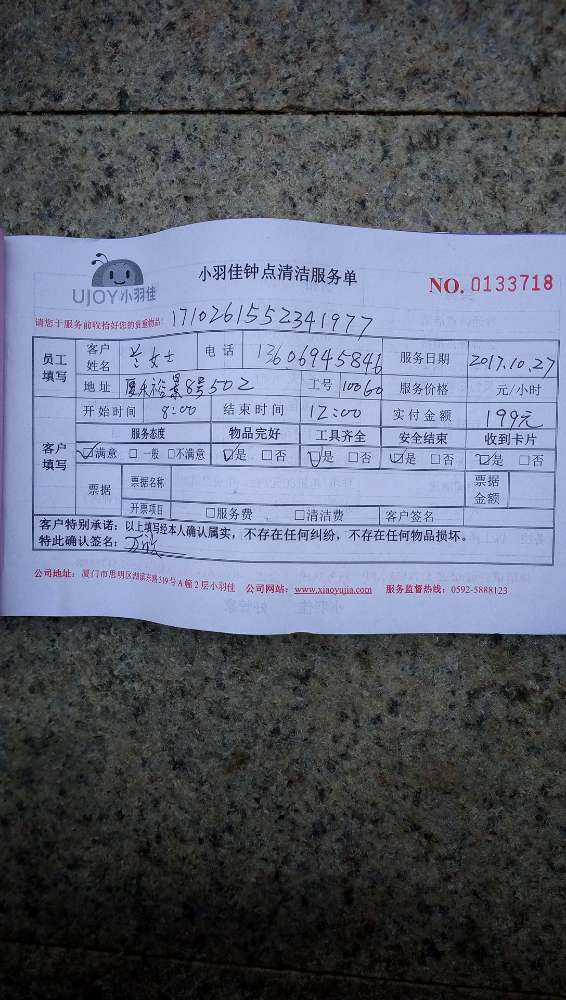 UJOY小羽佳
小羽佳钟点清洁服务单
NO. 0133718
请您于服务前收拾好您的贵重物品! 1710261552341977
员工填写 客户姓名 兰女士 电话 13606945846 服务日期 2017.10.27
地址 夏禾裕景8号502 工号 10060 服务价格 元/小时
客户填写 开始时间 8:00 结束时间 12:00 实付金额 199元
服务态度 物品完好 工具齐全 安全结束 收到卡片
☑满意 □一般 □不满意 ☑是 □否 ☑是 □否 ☑是 □否 ☑是 □否
票据 票据名称 票据金额
开票项目 □服务费 □清洁费 客户签名
客户特别承诺：以上填写经本人确认属实，不存在任何纠纷，不存在任何物品损坏。
特此确认签名：
公司地址：厦门市思明区湖滨东路319号A幢2层小羽佳 公司网站：www.xiaoyujia.com 服务监督热线：0592-5888123